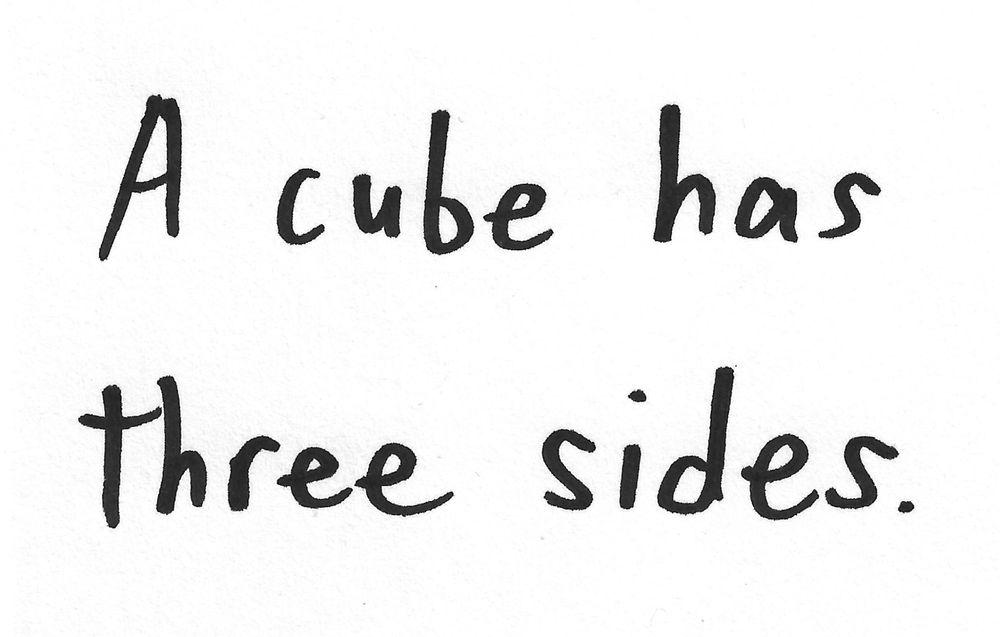 A cube has
three sides.